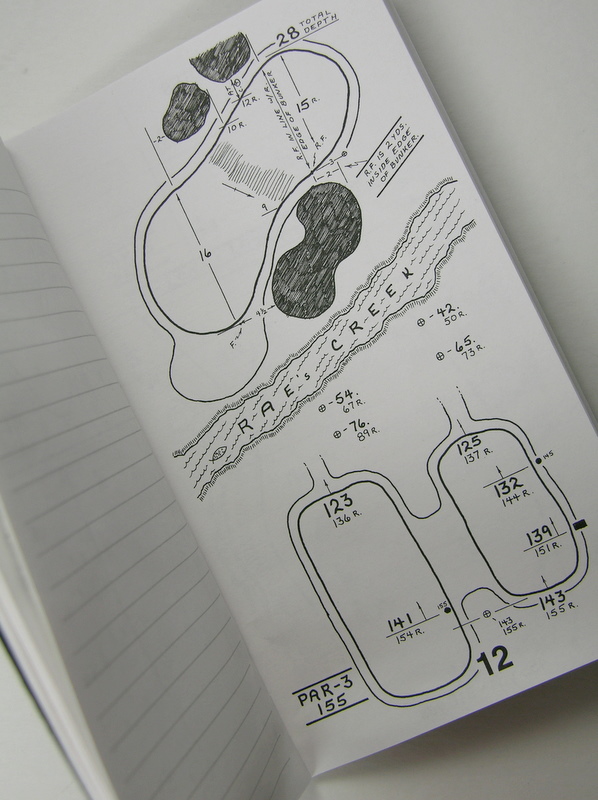 28 TOTAL
DEPTH
12 R.
10 R.
2
R.F. IN LINE W/R.
EDGE OF BUNKER
15 R.
R.F.
3
2
R.F. IS 2 YDS.
INSIDE EDGE
OF BUNKER.
9
16
9½
F.
RAE'S CREEK
-42.
50 R.
-65.
73 R.
-54.
67 R.
-76.
89 R.
125
137 R.
145
132
144 R.
123
136 R.
139
151 R.
143
155 R.
141
154 R.
155
143
155 R.
12
PAR-3
155